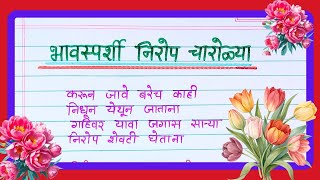 भावस्पर्शी निरोप चारोळ्या
करून जावे बरेच काही
निघून येथून जाताना
गहिवर यावा जगास साऱ्या
निरोप शेवटी घेताना